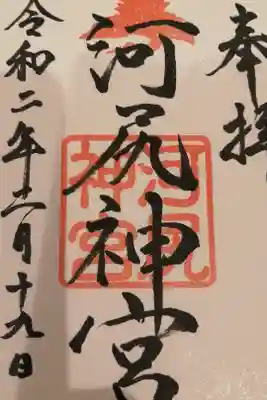 奉拝
河尻神宮
河尻神宮
令和二年十二月十九日